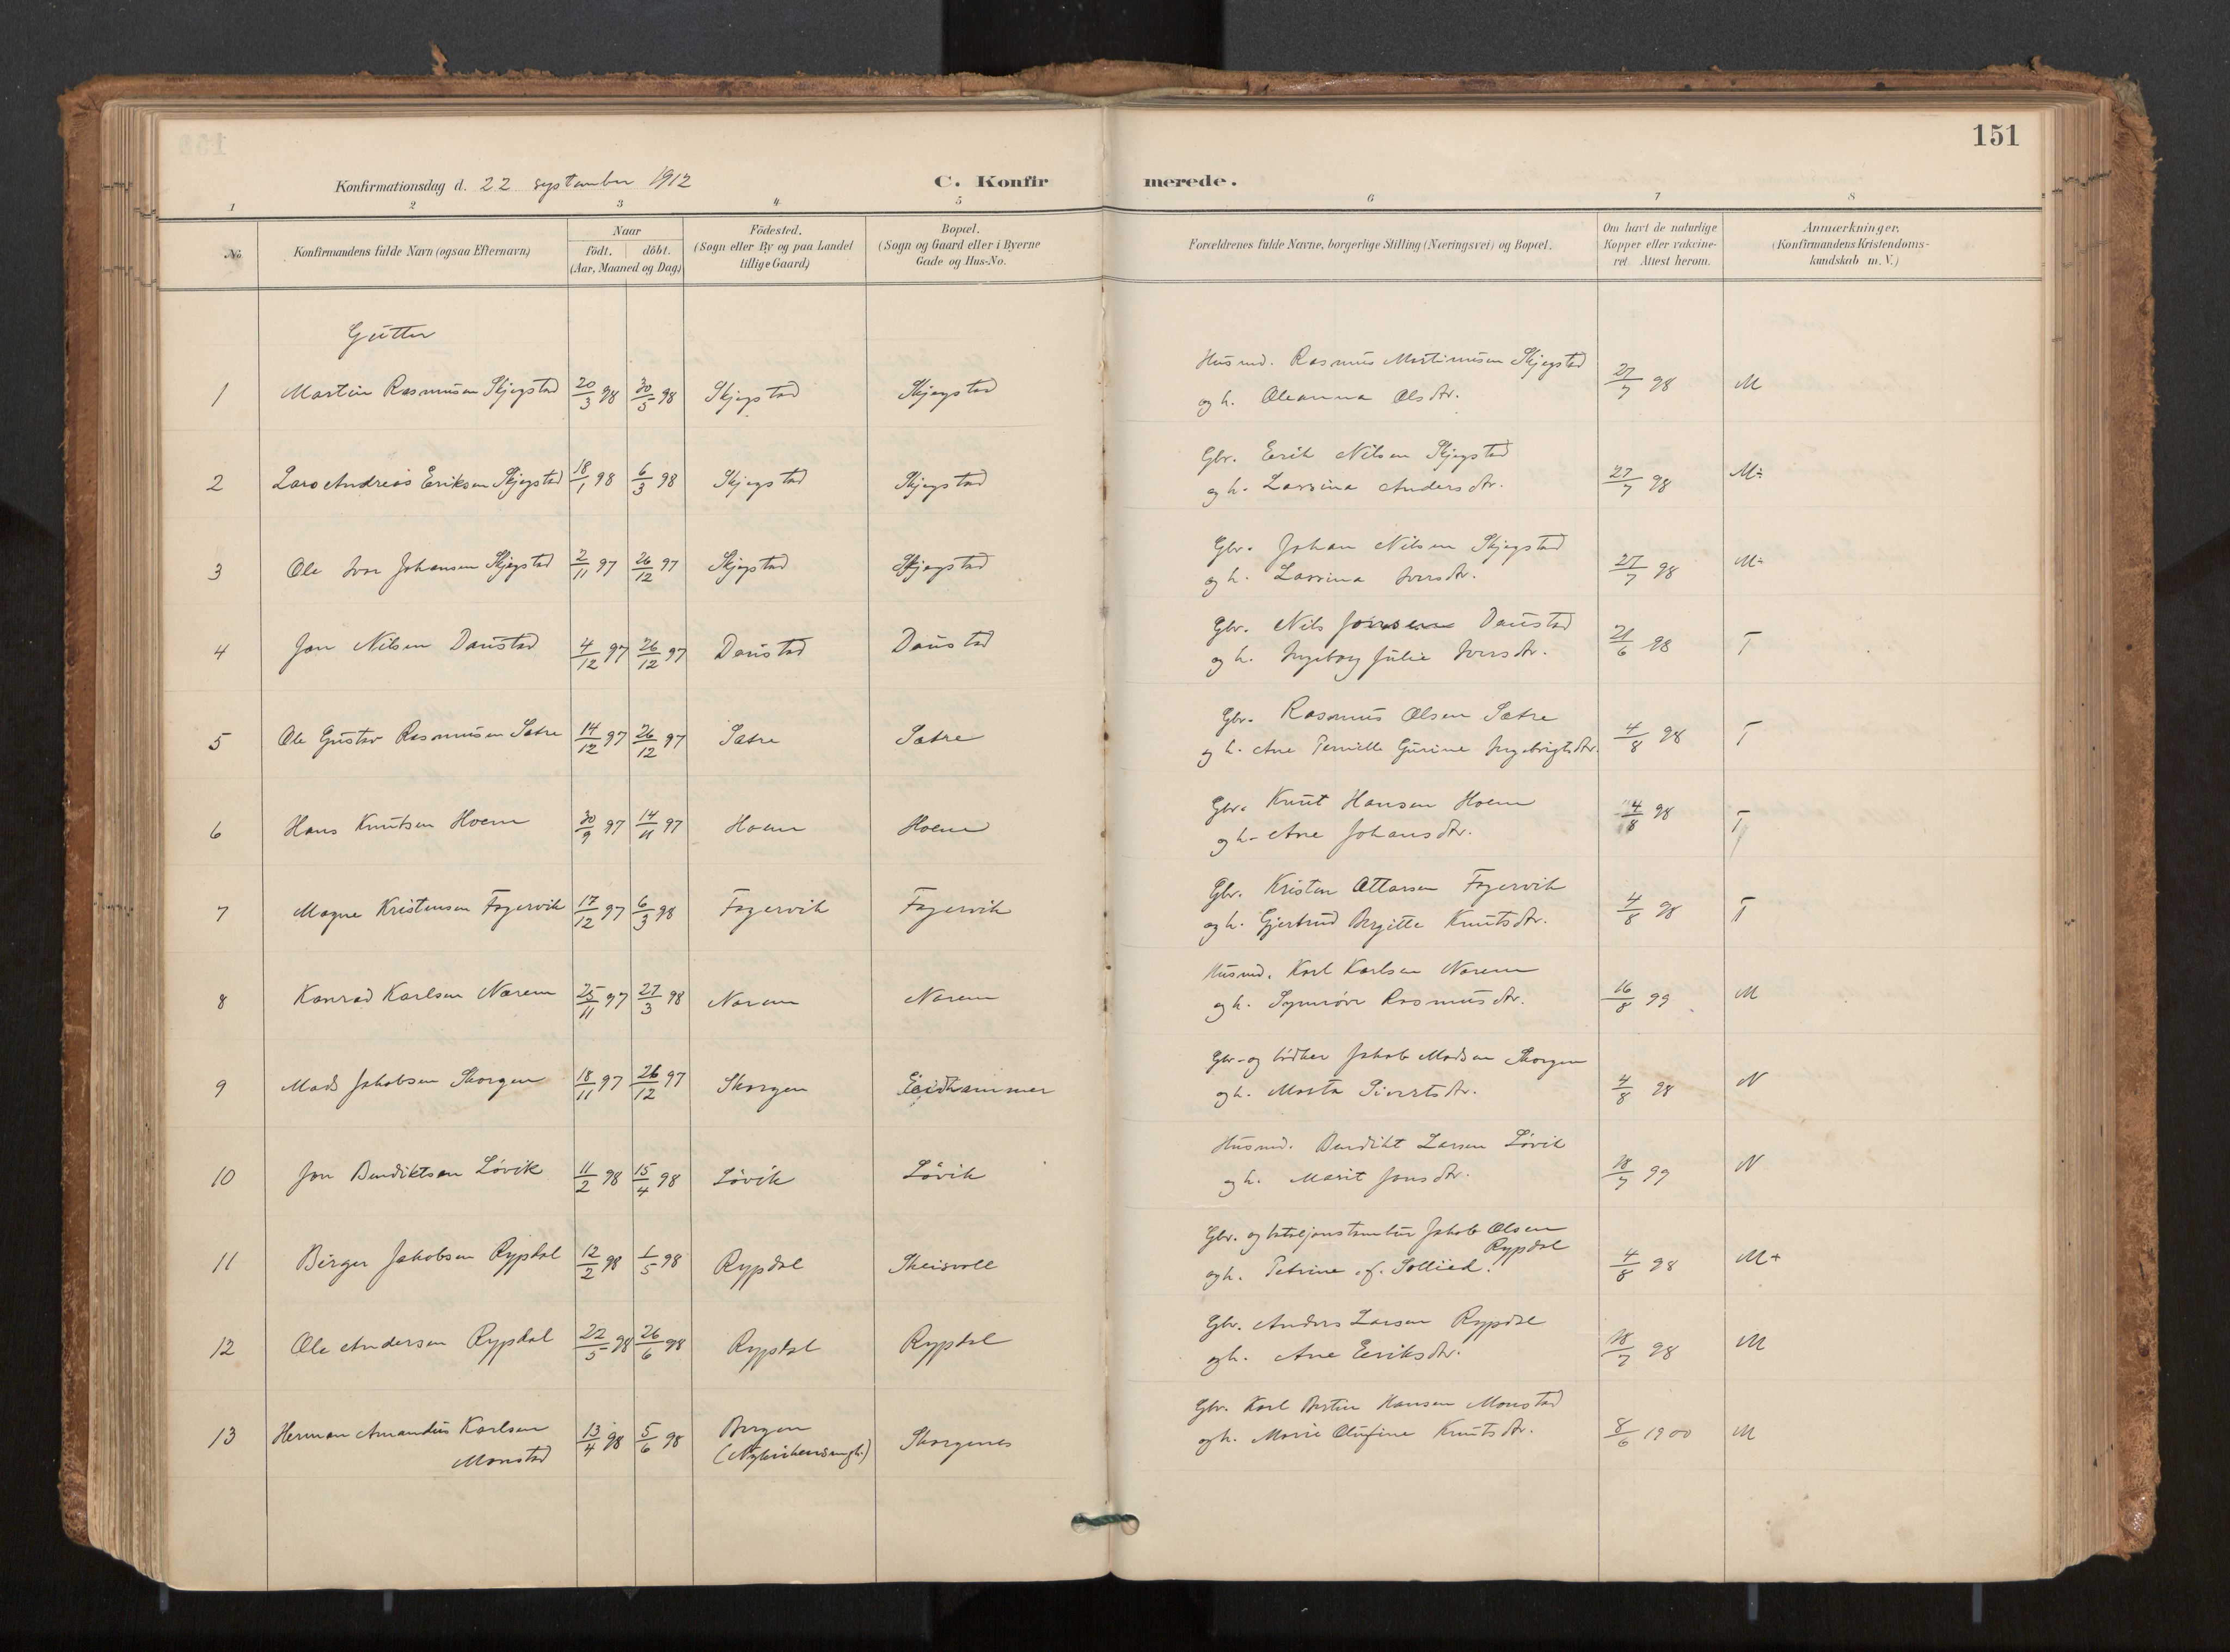 151
Konfirmationsdag d. 22 september 1912
C. Konfirmerede.
1 2 3 4 5 6 7 8
No. Konfirmandens fulde Navn (ogsaa Efternavn) Naar födt. döbt. (Aar, Maaned og Dag) Födested. (Sogn eller By og paa Landet tillige Gaard) Bopæl. (Sogn og Gaard eller i Byerne Gade og Hus-No. Forældrenes fulde Navne, borgerlige Stilling (Næringsvei) og Bopæl. Om havt de naturlige Kopper eller vakcineret. Attest herom. Anmærkninger, (Konfirmandens Kristendomskundskab m. V.)
Gutter
Husmd. Rasmus Martinusen Skjegstad
1 Martin Rasmusen Skjegstad 20/3 98 30/5 98 Skjegstad Skjegstad og h. Oleanna Olsdtr. 27/7 98 M
Gbr. Erik Nilsen Skjegstad
2 Lars Andreas Eriksen Skjegstad 18/1 98 6/3 98 Skjegstad Skjegstad og h. Lassina Andersdtr. 27/7 98 M÷
Gbr. Johan Nilsen Skjegstad
3 Ole Iver Johansen Skjegstad 2/11 97 26/12 97 Skjegstad Skjegstad og h. Lassina Iversdtr. 27/7 98 M÷
Gbr. Nils Jonsen Daustad
4 Jon Nilsen Daustad 4/12 97 26/12 97 Daustad Daustad og h. Ingeborg Julie Iversdtr. 21/6 98 T
Gbr. Rasmus Olsen Sætre
5 Ole Gustav Rasmusen Sætre 14/12 97 26/12 97 Sætre Sætre og h. Ane Pernille Gurine Ingebrigtsdtr. 4/8 98 T
Gbr. Knut Hansen Hoem
6 Hans Knutsen Hoem 30/9 97 14/11 97 Hoem Hoem og h. Ane Johansdtr. 4/8 98 T
Gbr. Kristen Ottarsen Fagervik
7 Magne Kristensen Fagervik 17/12 97 6/3 98 Fagervik Fagervik og h. Gjertrud Bergitte Knutsdtr. 4/8 98 T
Husmd. Karl Karlsen Narem
8 Konrad Karlsen Narem 25/11 97 27/3 98 Narem Narem og h. Synnöve Rasmusdtr. 16/8 99 M
Gbr. og bödker Jakob Madsen Skorgen
9 Mads Jakobsen Skorgen 18/11 97 26/12 97 Skorgen Eidhammer og h. Marta Sivertsdtr. 4/8 98 N
Husmd. Bendikt Larsen Lövik
10 Jon Bendiktsen Lövik 11/2 98 15/4 98 Lövik Lövik og h. Marit Jonsdtr. 18/7 99 N
Gbr. og bataljonstambur Jakob Olsen Rypdal
11 Birger Jakobsen Rypdal 12/2 98 1/5 98 Rypdal Skeisvoll og h. Petrine f. Sollied. 4/8 98 M+
Gbr. Anders Larsen Rypdal
12 Ole Andersen Rypdal 22/5 98 26/6 98 Rypdal Rypdal og h. Ane Eriksdtr. 18/7 98 M
Gbr. Karl Bertin Hansen Monstad
13 Herman Amandus Karlsen Monstad 13/4 98 5/6 98 Bergen (Nykirkens mgh.) Skorgenes og h. Marie Olufine Knutsdtr. 8/6 1900 M